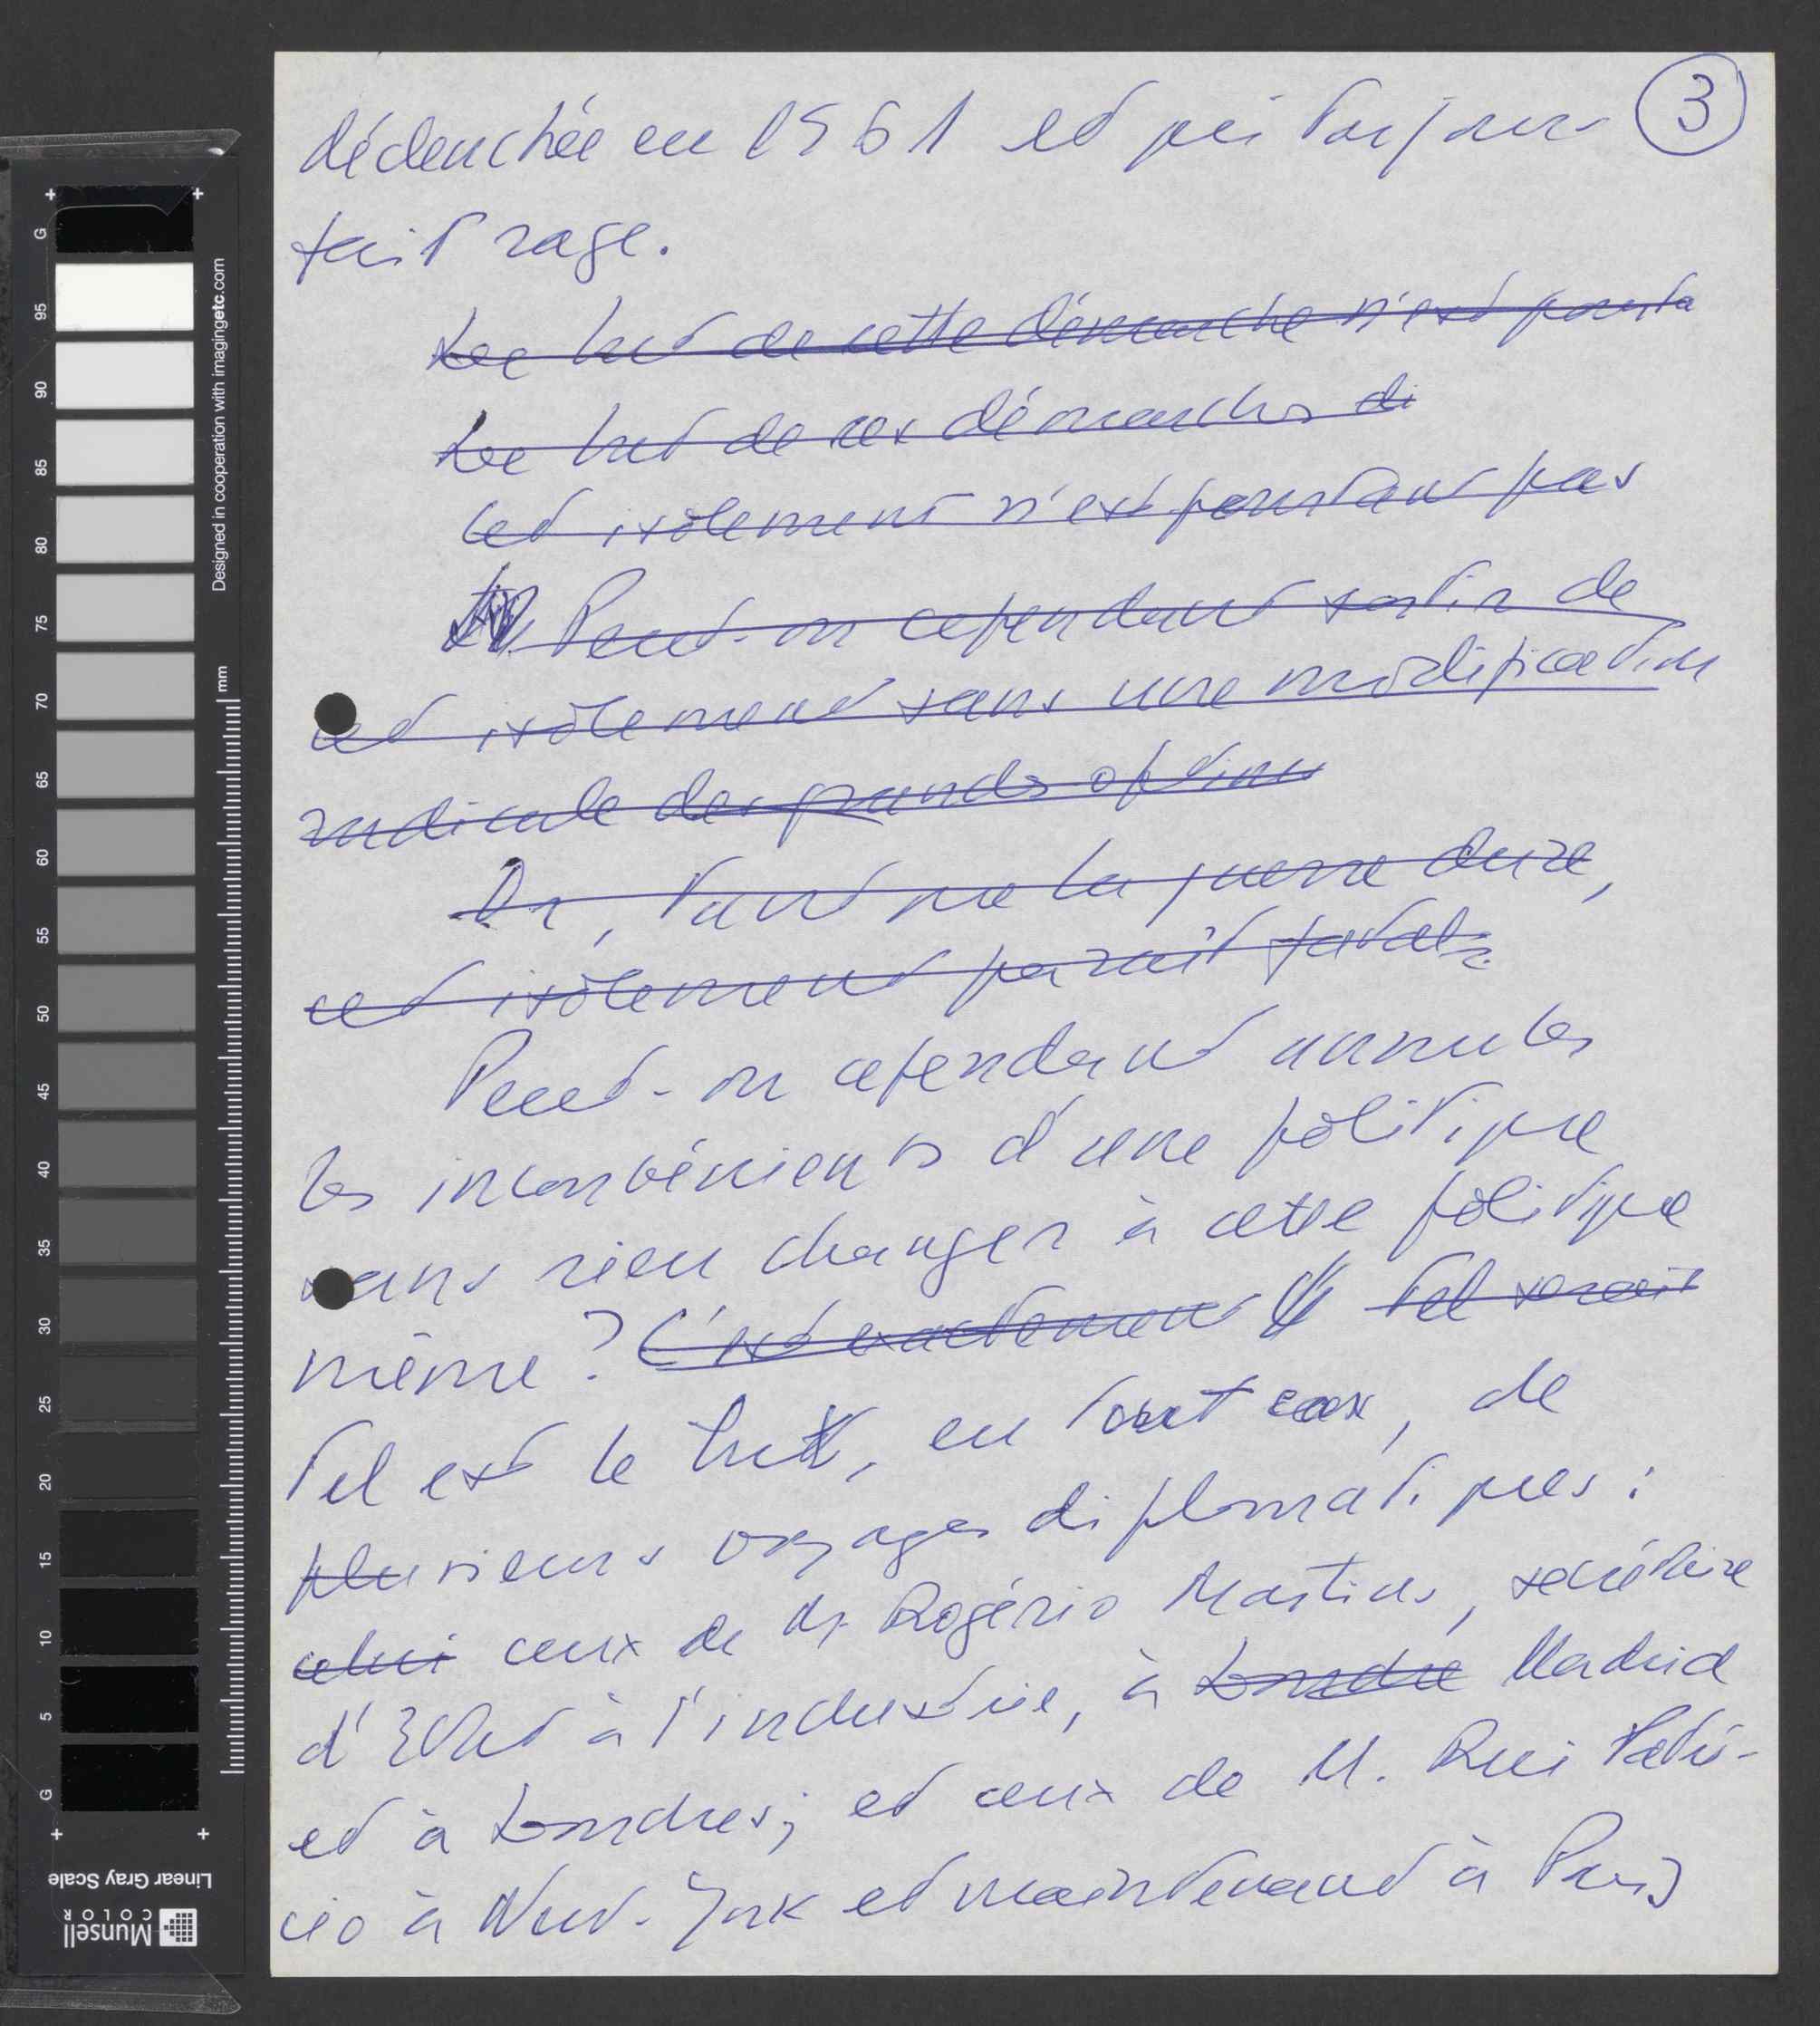 3
déclenchée en 1961 et qui toujours
fait rage.
Le but de cette démarche n'est pourta
Le but de ces démarches di
Cet isolement n'est pourtant pas
Peut-on cependant sortir de
cet isolement sans une modification
radicale des grands options
Or, tant que la guerre dure,
cet isolement paraît fatal.
Peut-on cependant annuler
les inconvénients d'une politique
sans rien changer à cette politique
même ? C'est exactement Tel serait
Tel est le but, en tout cas, de
plusieurs voyages diplomatiques :
celui ceux de M. Rogério Martins, secrétaire
d'Etat à l'industrie, à Londre Madrid
et à Londres; et ceux de M. Rui Patri-
cio à New-York et maintenant à Paris
G
95
90
85
80
75
70
65
60
55
50
45
40
35
30
25
20
15
10
5
G
mm
Designed in cooperation with imagingetc.com
Linear Gray Scale
Munsell
COLOR